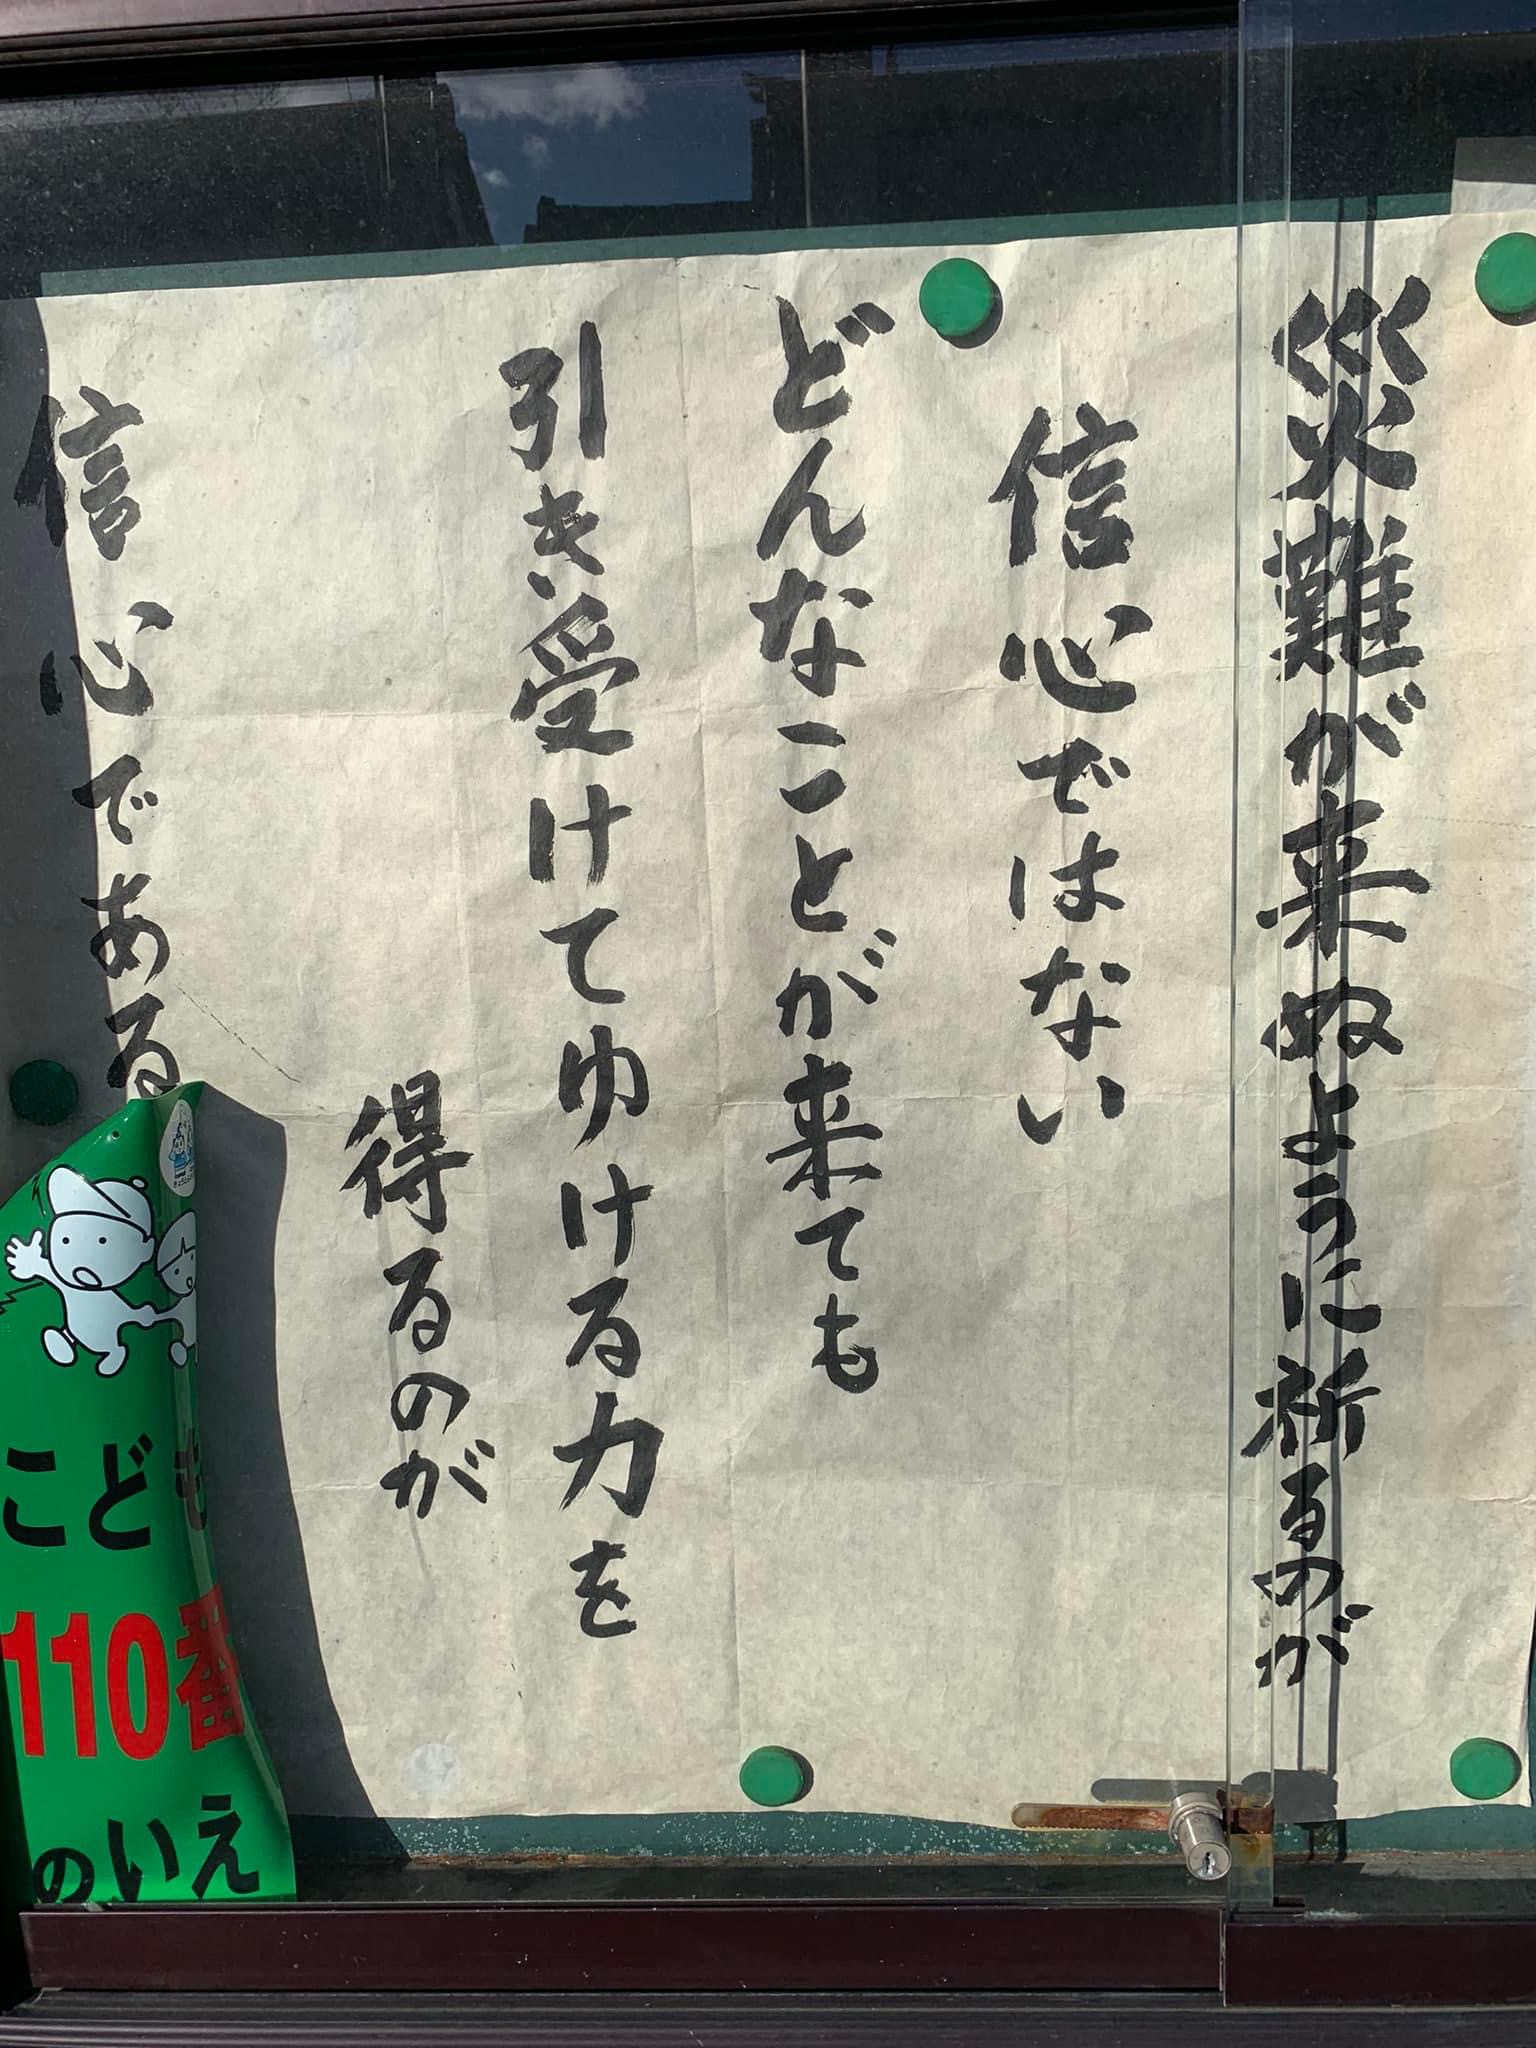 災難が来ぬように祈るのが
信心ではない
どんなことが来ても
引き受けてゆける力を
得るのが
信心である
こども
110番
のいえ